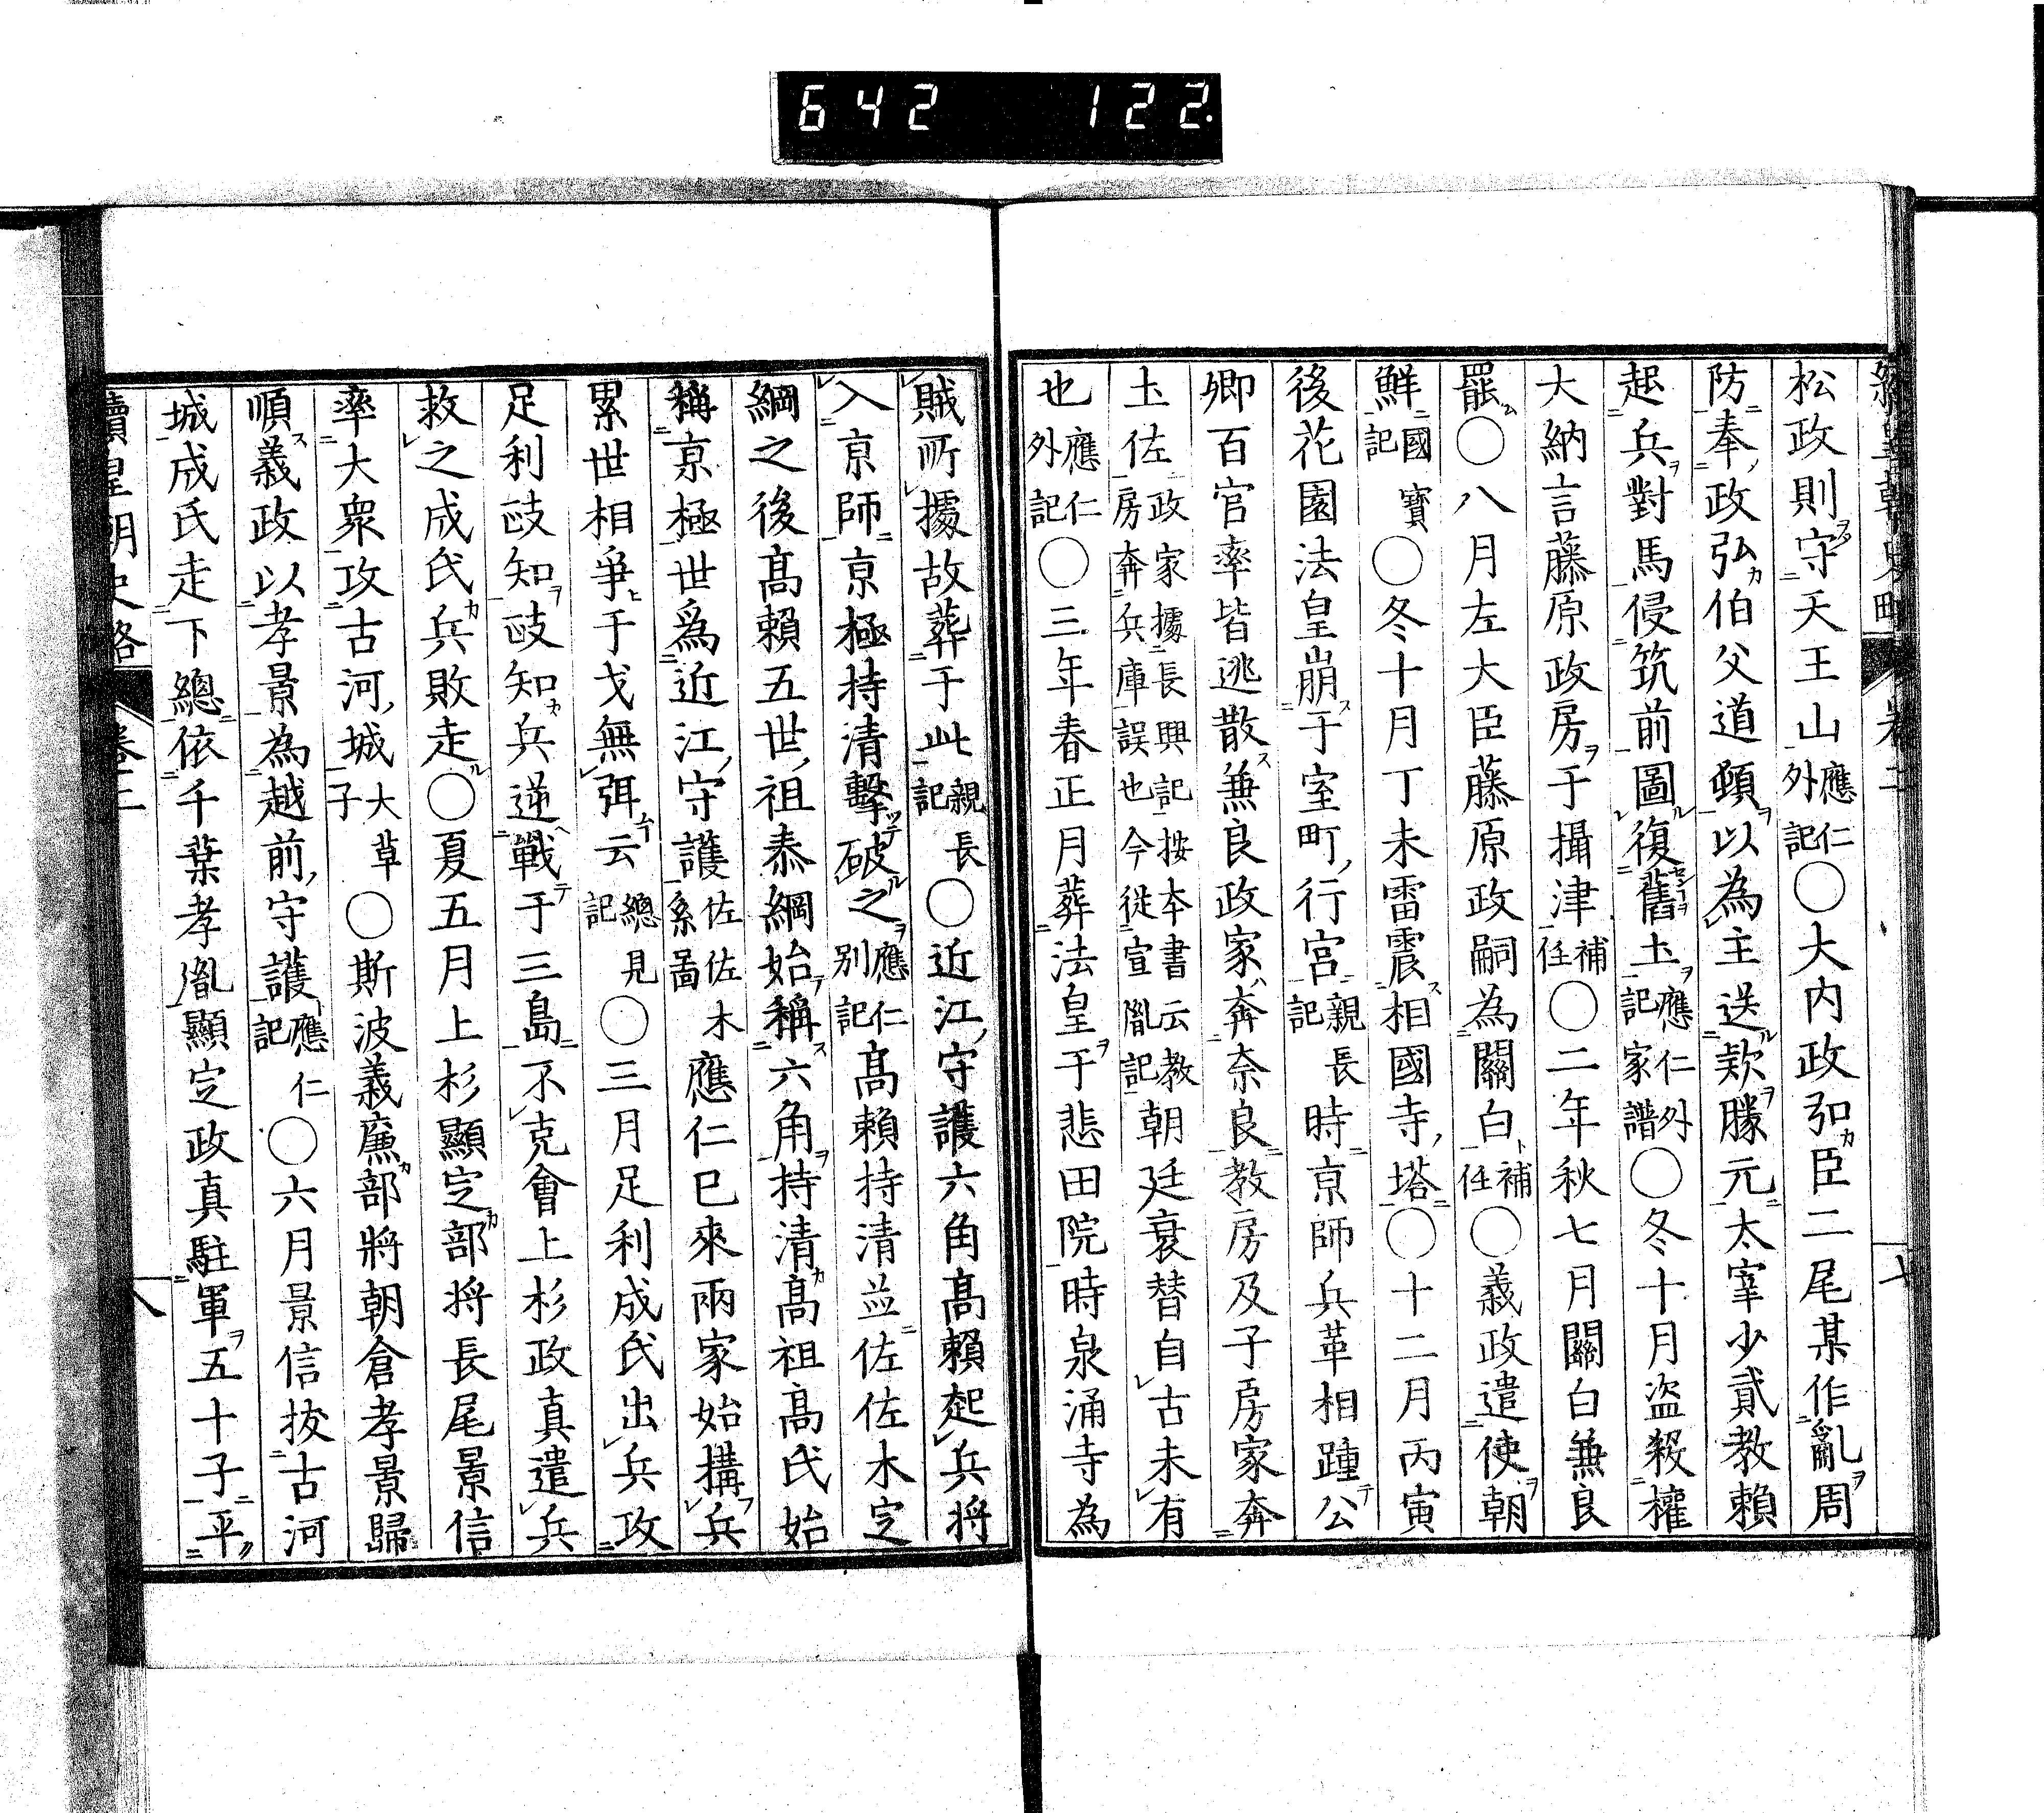 642 122.
松政則守天王山應仁外記○大内政弘臣二尾某作亂周
防奉政弘伯父道頓以為主送欵勝元太宰少貳教賴
起兵對馬侵筑前圖復舊土應仁外記家譜○冬十月盗殺權
大納言藤原政房于攝津補任○二年秋七月關白兼良
罷○八月左大臣藤原政嗣為關白補任○義政遣使朝
鮮國寶記○冬十月丁未雷震相國寺塔○十二月丙寅
後花園法皇崩于室町行宮親長記時京師兵革相踵公
卿百官率皆逃散兼良政家奔奈良教房及子房家奔
土佐政家據長興記按本書云教房奔兵庫誤也今從宣胤記朝廷衰替自古未有
也應仁外記○三年春正月葬法皇于悲田院時泉涌寺為
賊所據故葬于此親長記○近江守護六角高賴起兵將
入京師京極持清擊破之應仁別記高賴持清並佐佐木定
綱之後高賴五世祖泰綱始稱六角持清高祖高氏始
稱京極世爲近江守護佐佐木系圖應仁已來兩家始構兵
累世相爭干戈無弭云總見記○三月足利成氏出兵攻
足利政知政知兵逆戰于三島不克會上杉政真遣兵
救之成氏兵敗走○夏五月上杉顯定部将長尾景信
率大衆攻古河城大草子○斯波義廉部將朝倉孝景歸
順義政以孝景為越前守護應仁記○六月景信拔古河
城成氏走下總依千葉孝胤顯定政真駐軍五十子平
續皇朝史略 卷二 八